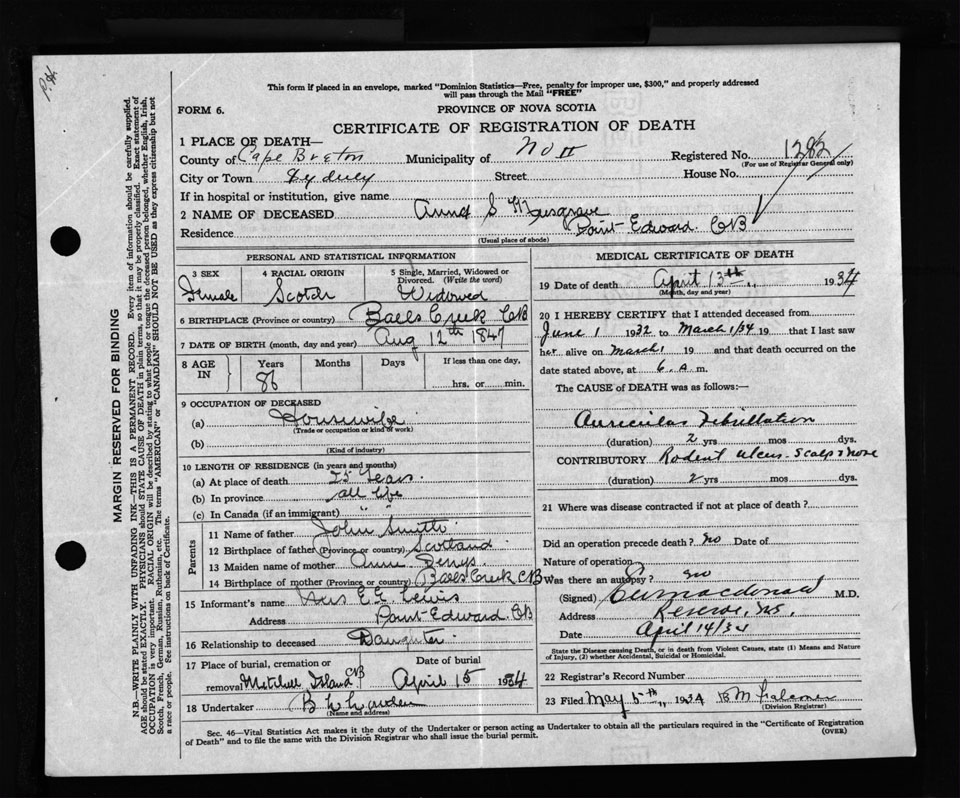 This form if placed in an envelope, marked "Dominion Statistics—Free, penalty for improper use, $300," and properly addressed
will pass through the Mail "FREE"
FORM 6.
PROVINCE OF NOVA SCOTIA
CERTIFICATE OF REGISTRATION OF DEATH
1 PLACE OF DEATH—
County of Cape Breton Municipality of No II Registered No. 1282
(For use of Registrar General only)
City or Town Sydney Street House No.
If in hospital or institution, give name
2 NAME OF DECEASED Anna S Musgrave
Residence Point Edward CB
(Usual place of abode)
PERSONAL AND STATISTICAL INFORMATION
3 SEX 4 RACIAL ORIGIN 5 Single, Married, Widowed or Divorced. (Write the word)
Female Scotch Widowed
6 BIRTHPLACE (Province or country) Balls Creek CB
7 DATE OF BIRTH (month, day and year) Aug 12th 1847
8 AGE IN Years Months Days If less than one day,
86 hrs. or min.
9 OCCUPATION OF DECEASED
(a) Housewife
(Trade or occupation or kind of work)
(b)
(Kind of industry)
10 LENGTH OF RESIDENCE (in years and months)
(a) At place of death 25 Years.
(b) In province all life
(c) In Canada (if an immigrant) " "
Parents
11 Name of father John Smith
12 Birthplace of father (Province or country) Scotland
13 Maiden name of mother Anne
14 Birthplace of mother (Province or country) Balls Creek CB
15 Informant's name Mrs E. E. Lewis
Address Point Edward. CB
16 Relationship to deceased Daughter.
17 Place of burial, cremation or Date of burial
removal Mitchell Island CB April 15 1934
18 Undertaker B
(Name and address)
MEDICAL CERTIFICATE OF DEATH
19 Date of death April 13th 1934
(Month, day and year)
20 I HEREBY CERTIFY that I attended deceased from
June 1 1932 to March 1/34 19 that I last saw
her alive on March 1 19 and that death occurred on the
date stated above, at 6. a m.
The CAUSE of DEATH was as follows:—
Auricular Fibrillation
(duration) 2 yrs mos dys.
CONTRIBUTORY Rodent ulcer - Scalp & nose
(duration) 2 yrs. mos. dys.
21 Where was disease contracted if not at place of death?
Did an operation precede death? no Date of
Nature of operation
Was there an autopsy? no
(Signed) Macdonald M.D.
Address Reserve, N.S.
Date April 14/34
State the Disease causing Death, or in death from Violent Causes, state (1) Means and Nature
of Injury, (2) whether Accidental, Suicidal or Homicidal.
22 Registrar's Record Number
23 Filed May 5th 1934 B M Falconer
(Division Registrar)
Sec. 46—Vital Statistics Act makes it the duty of the Undertaker or person acting as Undertaker to obtain all the particulars required in the "Certificate of Registration
of Death" and to file the same with the Division Registrar who shall issue the burial permit.
(OVER)
MARGIN RESERVED FOR BINDING
N.B.—WRITE PLAINLY WITH UNFADING INK—THIS IS A PERMANENT RECORD. Every item of information should be carefully supplied.
AGE should be stated EXACTLY. PHYSICIANS should STATE CAUSE OF DEATH in plain terms, so that it may be properly classified. Exact statement of
OCCUPATION is very important. RACIAL ORIGIN will be described by stating to what people or tongue the deceased person belonged, whether English, Irish,
Scotch, French, German, Russian, Ruthenian, etc. The terms "AMERICAN" or "CANADIAN" SHOULD NOT BE USED as they express citizenship but not
a race or people. See instructions on back of Certificate.